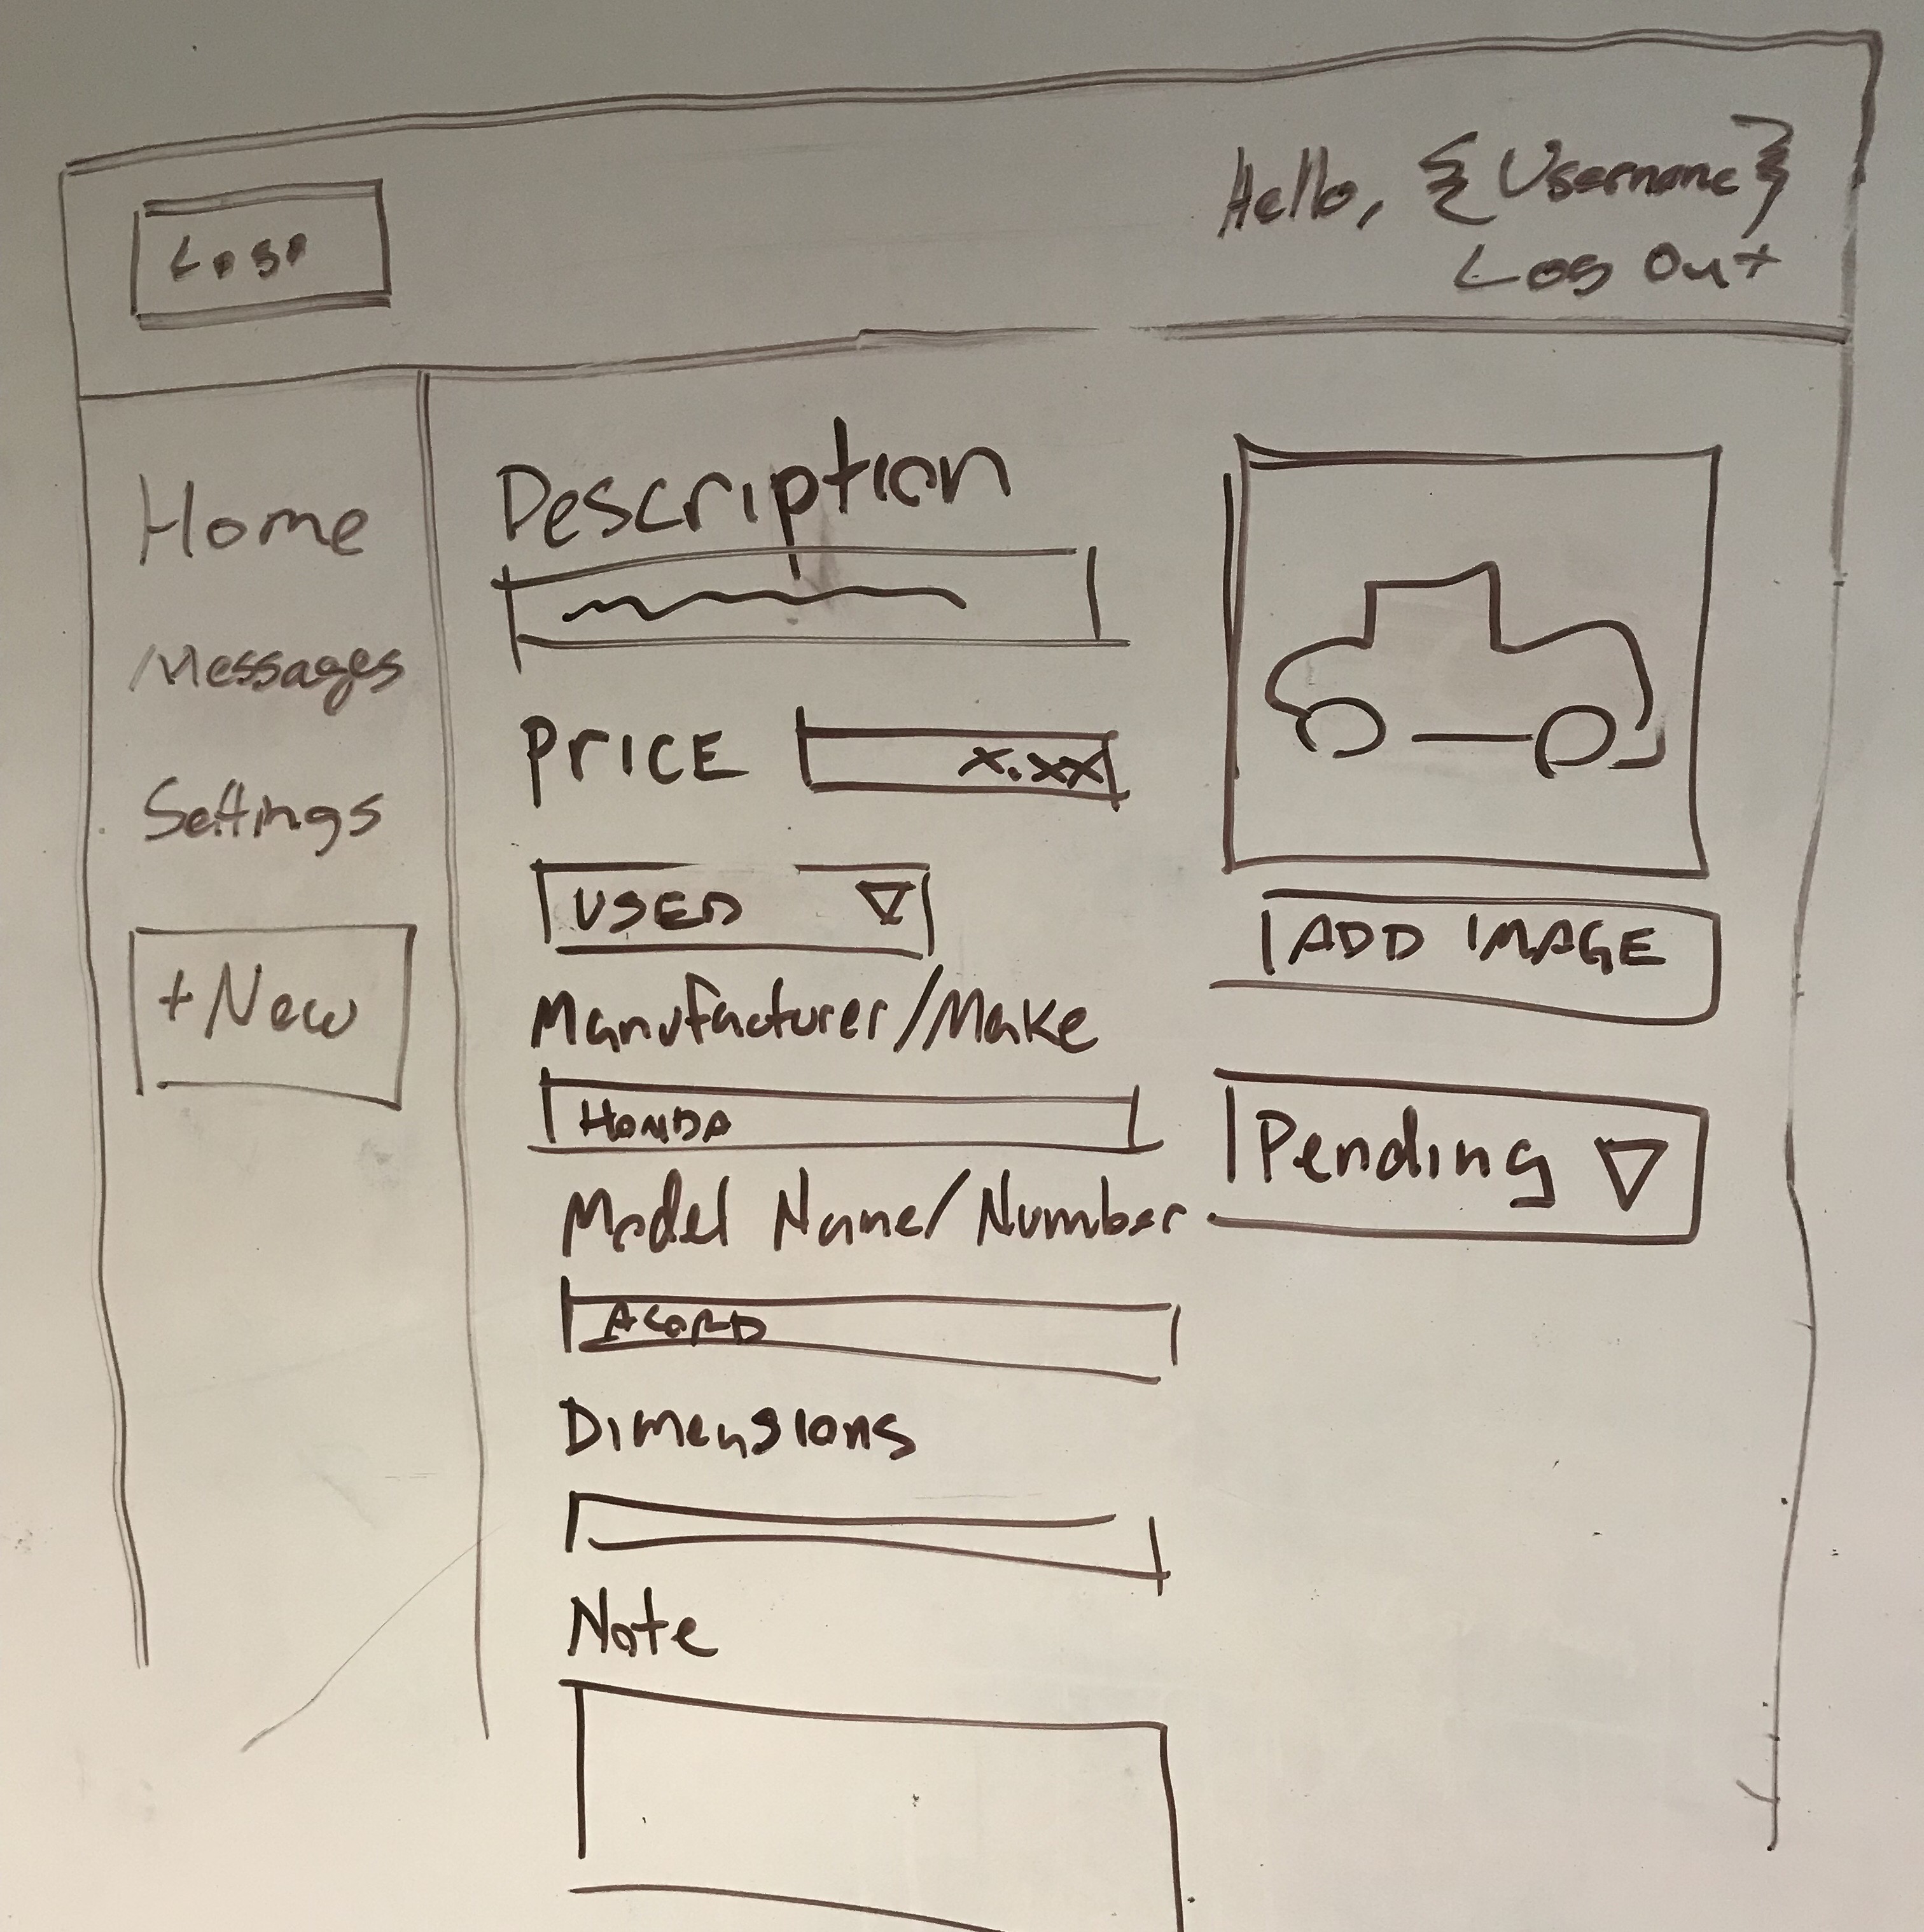 Logo
Hello, {Username}
Log Out
Home
Messages
Settings
+New
Description
PRICE
X.XX
USED
Manufacturer/Make
HONDA
Model Name/Number
ACORD
Dimensions
Note
ADD IMAGE
Pending